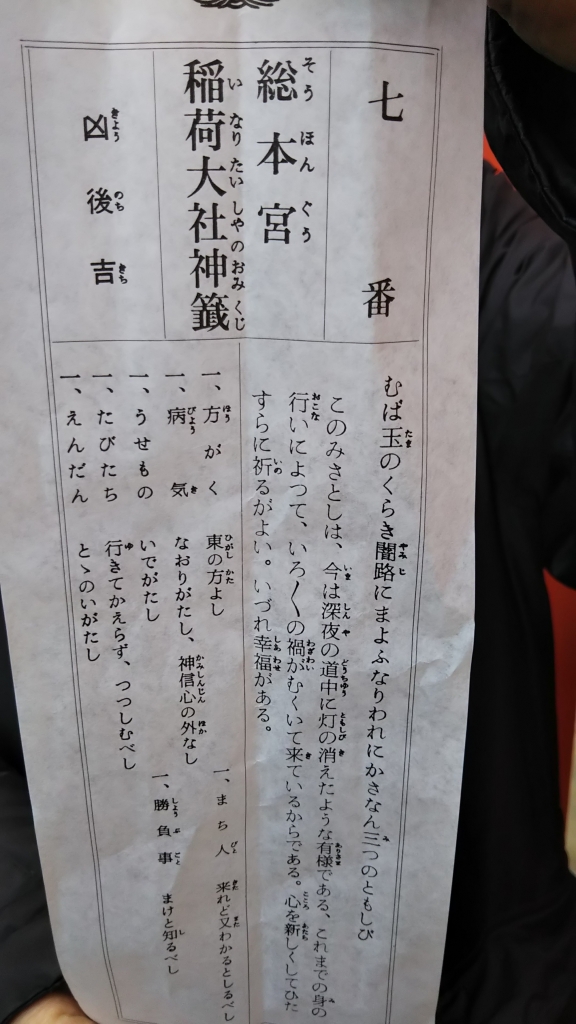 七番
総本宮
稲荷大社神籤
凶後吉
むば玉のくらき闇路にまよふなりわれにかさなん三つのともしび
このみさとしは、今は深夜の道中に灯の消えたような有様である、これまでの身の
行いによつて、いろ〳〵の禍がむくいて来ているからである。心を新しくしてひた
すらに祈るがよい。いづれ幸福がある。
一、方がく 東の方よし
一、病気 なおりがたし、神信心の外なし
一、うせもの いでがたし
一、たびたち 行きてかえらず、つつしむべし
一、えんだん とゝのいがたし
一、まち人 来れど又わかるとしるべし
一、勝負事 まけと知るべし